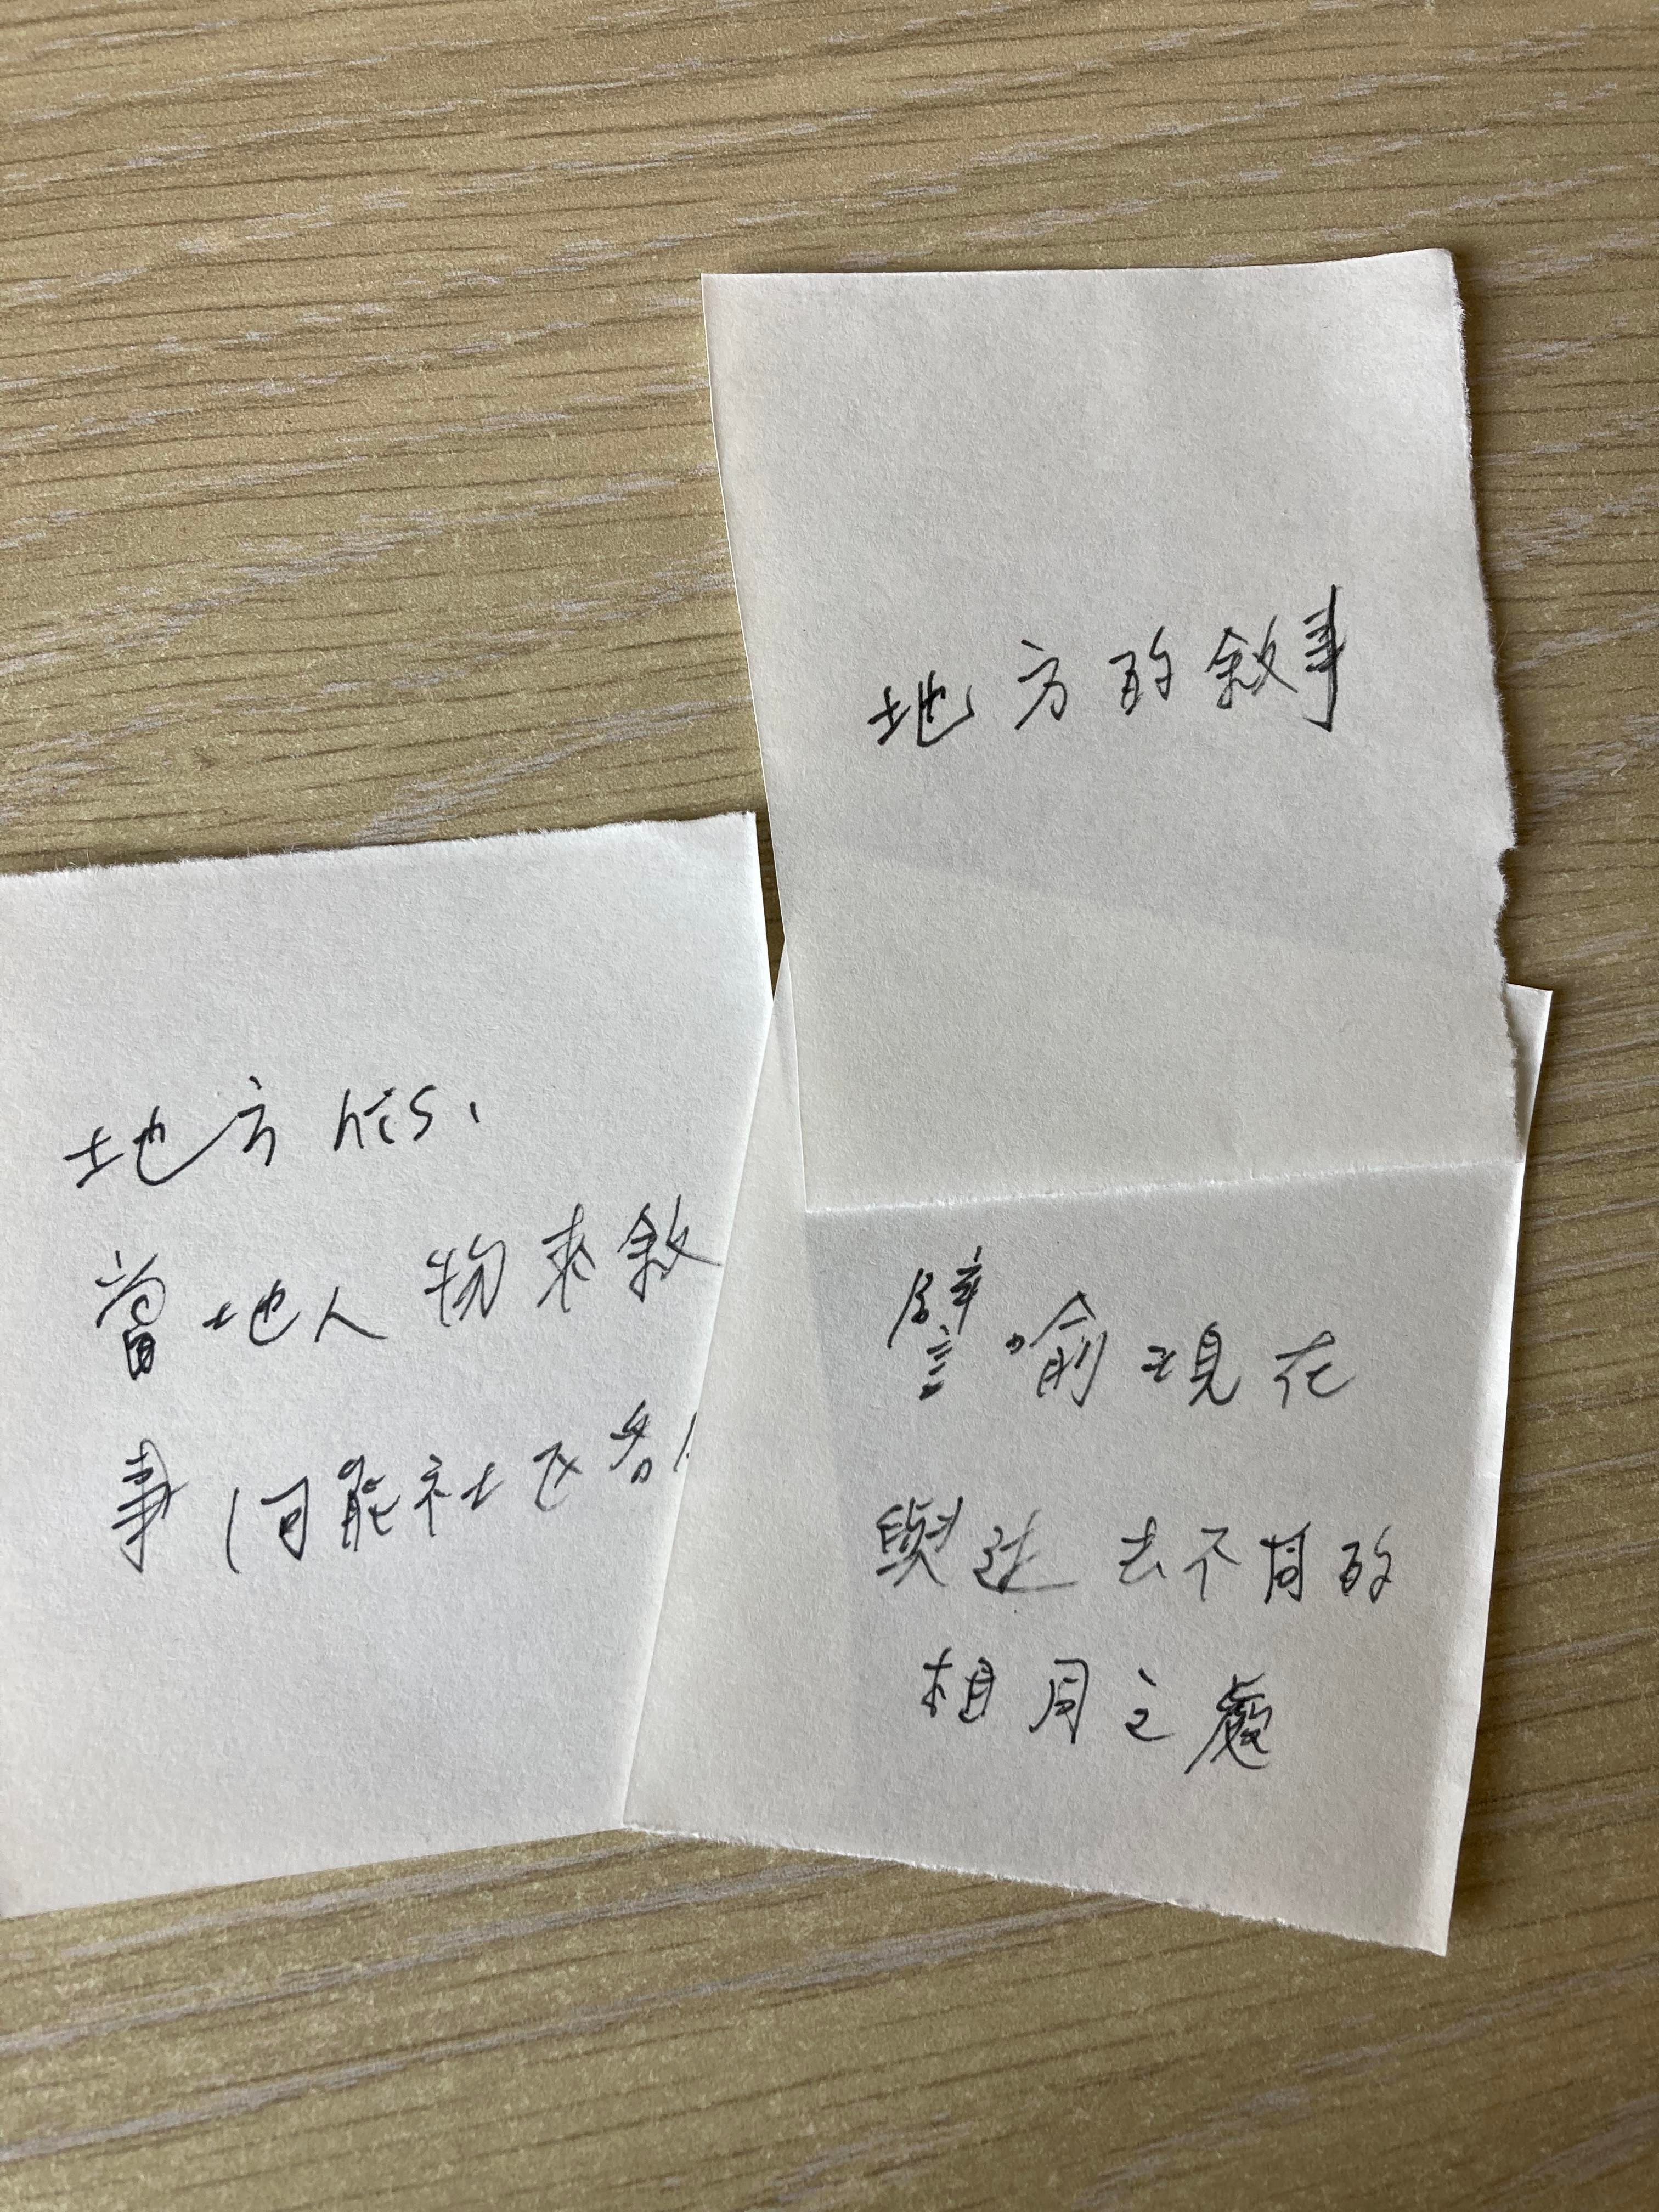 地方的敘事
地方 his,
當地人物來敘
事(同能社區各
譬喻現在
與過去不同的
相同之處